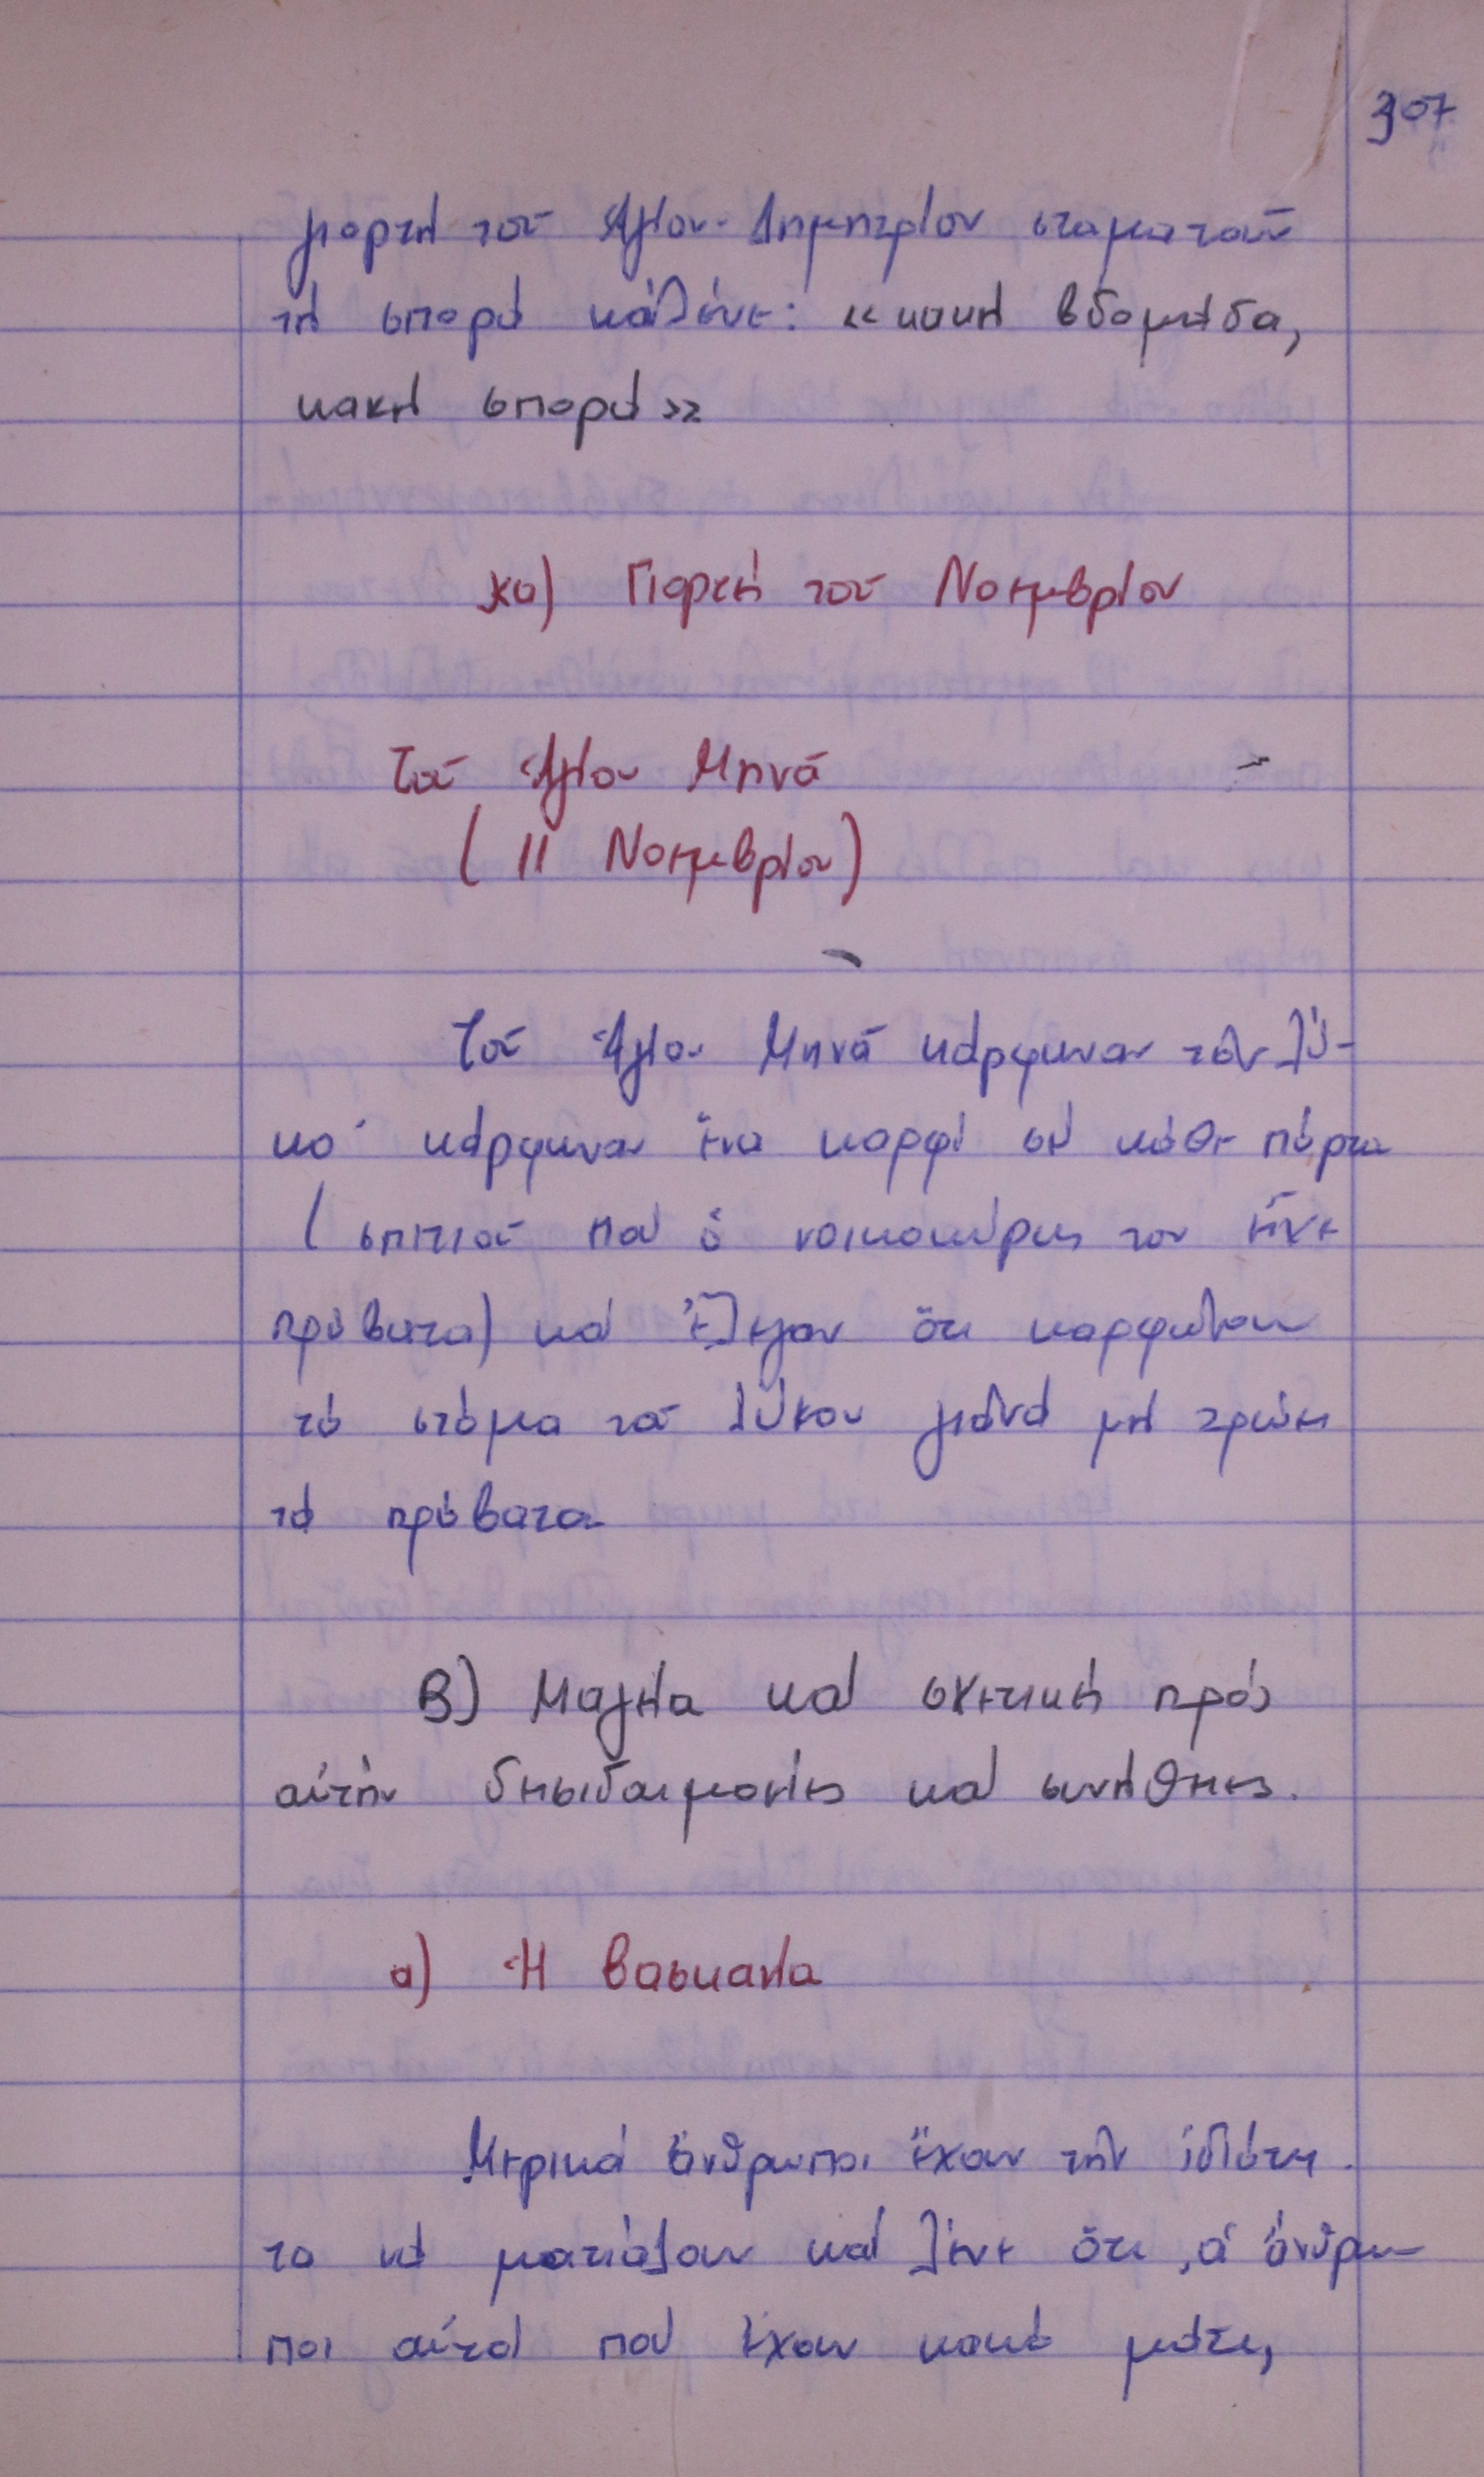 307
γιορτή τοῦ Ἁγίου Δημητρίου σταματοῦν
τή σπορά κά λένε: «κακή βδομάδα,
κακή σπορά»
κα) Γιορτή τοῦ Νοεμβρίου
Τοῦ Ἁγίου Μηνᾶ
(11 Νοεμβρίου)
Τοῦ Ἁγίου Μηνᾶ κάρφωναν τόν λύ-
κο· κάρφωναν ἕνα καρφί σέ κάθε πόρτα
(σπιτιοῦ πού ὁ νοικοκύρης του εἶχε
πρόβατα) καί ἔλεγαν ὅτι καρφώνουν
τό στόμα τοῦ λύκου γιά νά μή τρώει
τά πρόβατα
Β) Μαγεία καί σχετικές πρός
αὐτήν δεισιδαιμονίες καί συνήθειες.
α) Ἡ βασκανία
Μερικοί ἄνθρωποι ἔχουν τήν ἰδιότη-
τα νά ματιάζουν καί λένε ὅτι, οἱ ἄνθρω-
ποι αὐτοί πού ἔχουν κακό μάτι,